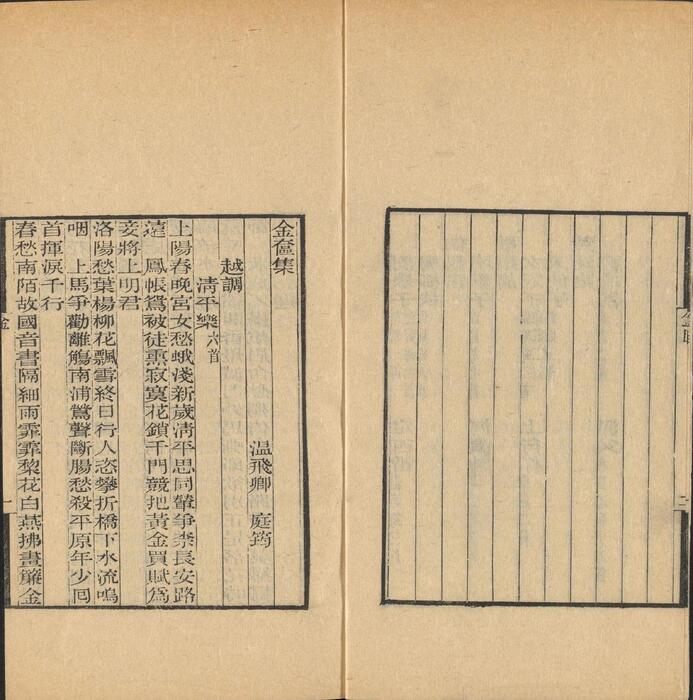 金奩集
温飛卿 庭筠
越調
清平樂 六首
上陽春晚宮女愁蛾淺新歲清平思同輦爭柰長安路
遠 鳳帳鴛被徒熏寂寞花鎖千門競把黃金買賦爲
妾將上明君
洛陽愁葉楊柳花飄雪終日行人恣攀折橋下水流嗚
咽 上馬爭勸離觴南浦鶯聲斷腸愁殺平原年少囘
首揮淚千行
春愁南陌故國音書隔細雨霏霏棃花白燕拂畫簾金
金
一
二